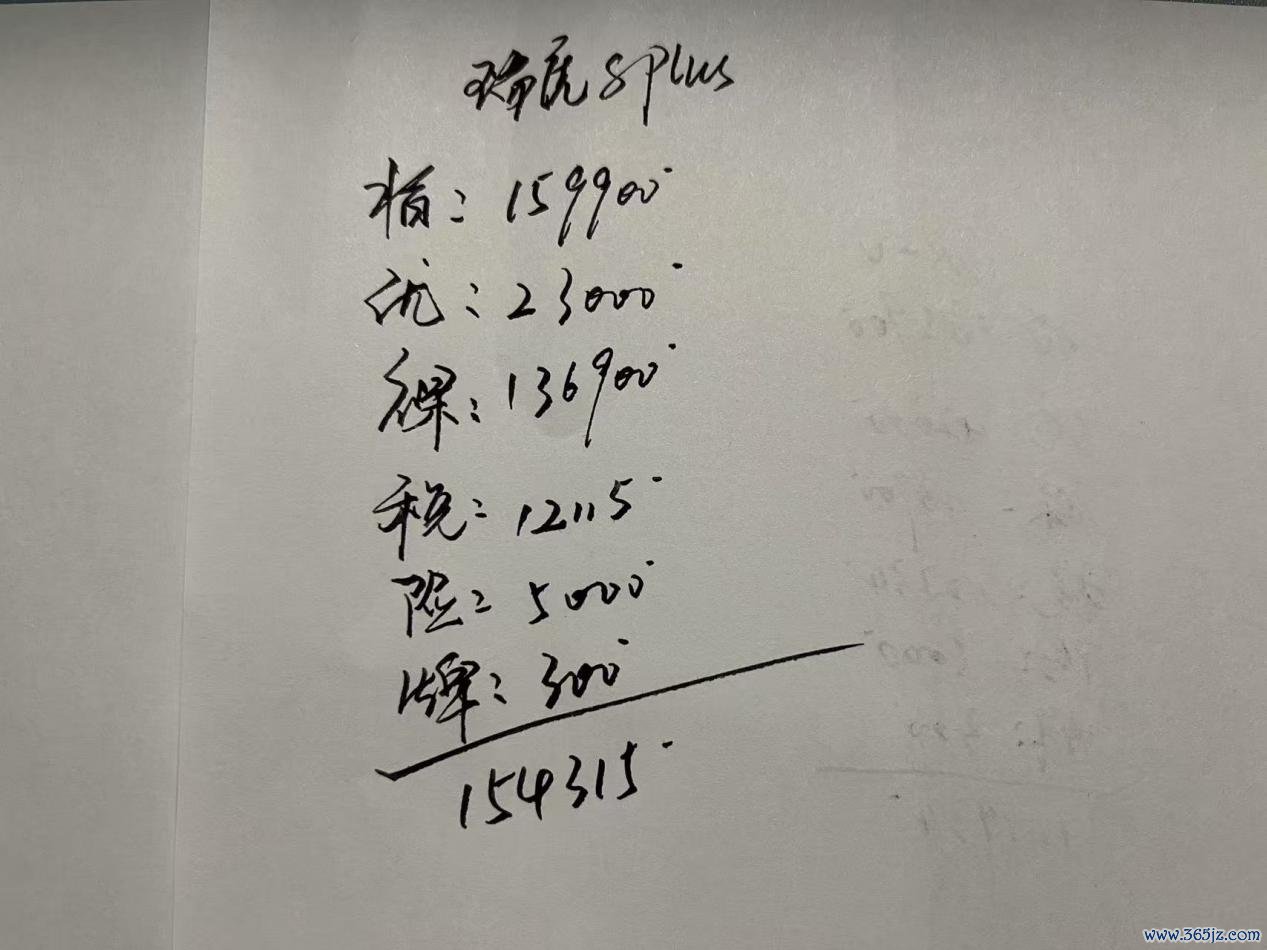 瑞虎8plus
指:159900
优:23000
裸:136900
税:12115
险:5000
牌:300
154315
www.365jz.com